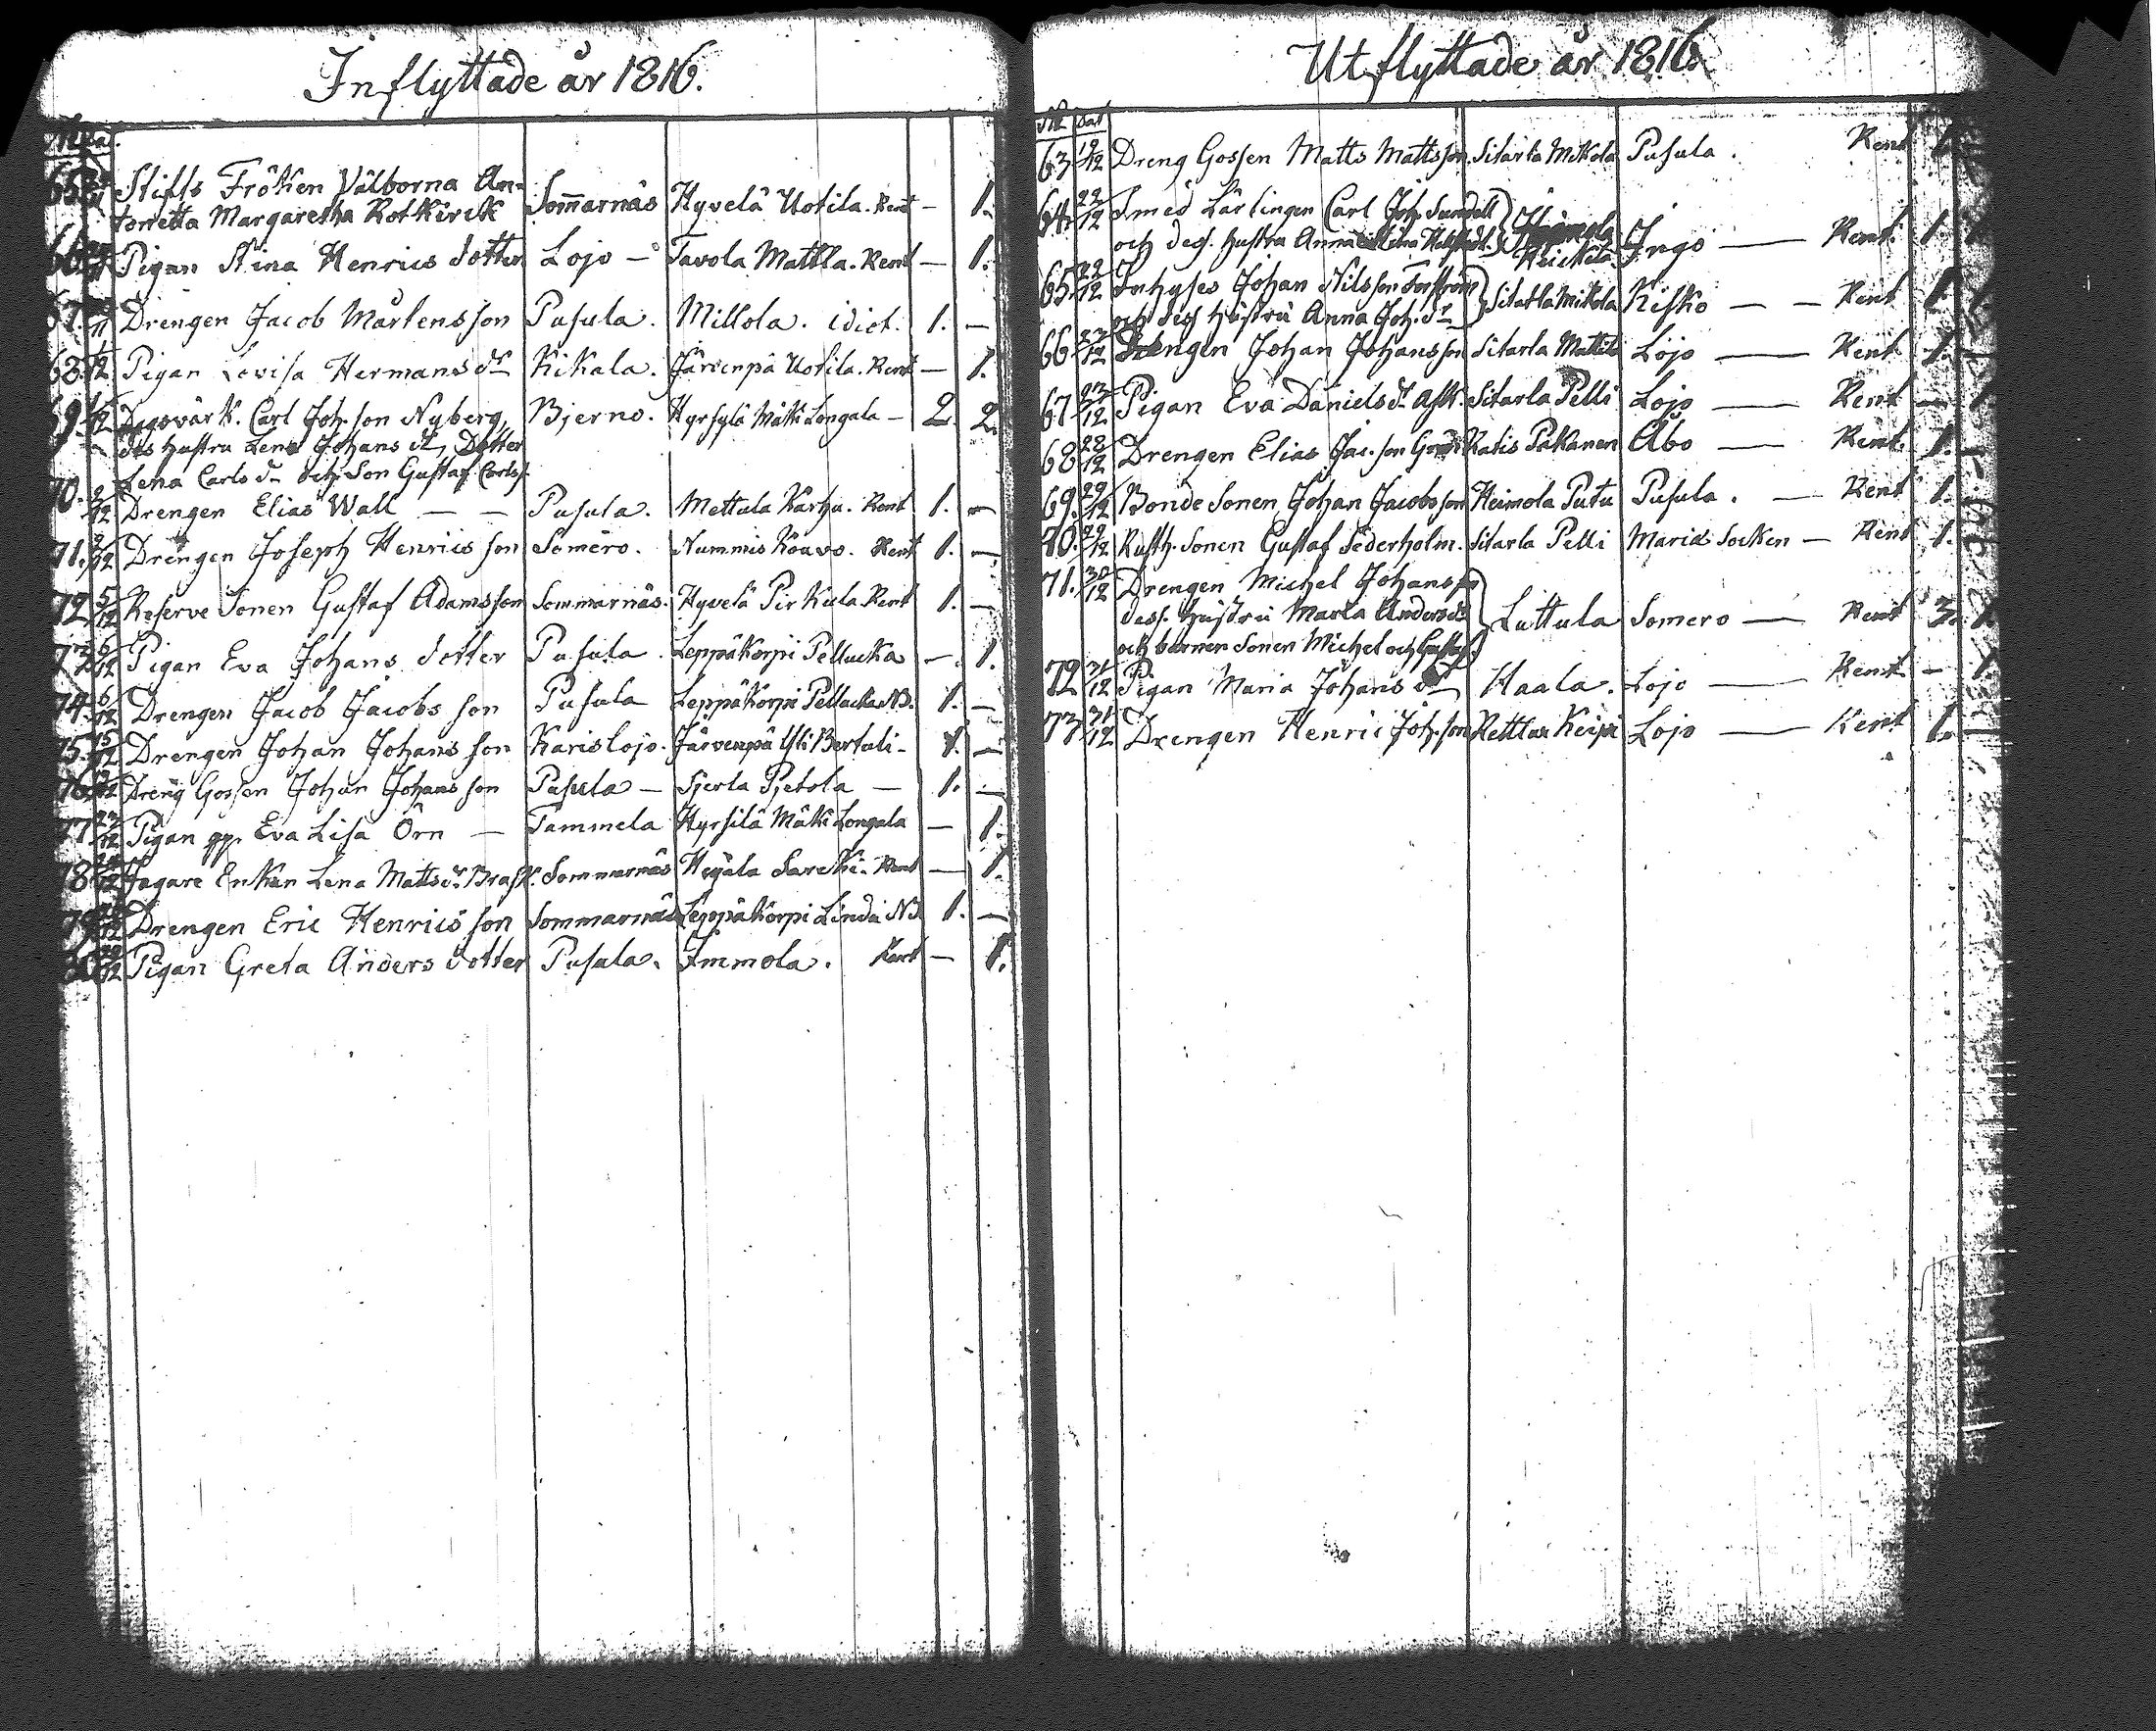 Inflyttade år 1816.
Stifts Fröken Välborna An-
tonetta Margaretha Rotkirck Somarnäs Hyvelä Uotila. Rent — 1.
Pigan Stina Henrics dotter Lojo — Tavola Mattla. Rent — 1.
Drengen Jacob Mårtensson Pusula. Millola. idiot. 1. —
68. Pigan Lovisa Hermansdr Kikala. Järvenpä Uotila. Rent — 1.
69. Dagsvärk. Carl Joh.son Nyberg, Bjerno. Hyrsylä Mäki Longala — 2. 2.
des hustru Lena Johans dr, Dotter
Lena Carls dr och Son Gustaf Carlss.
70. 2/12 Drengen Elias Wall — — Pusula. Mettula Karhu. Rent 1. —
71. 2/12 Drengen Joseph Henrics son Somero. Nummis Kouvo. Rent 1. —
72 5/12 Reserve Sonen Gustaf Adamsson Sommarnäs. Hyvelä Pirkula Rent 1. —
73 6/12 Pigan Eva Johans dotter Pusula. Leppäkorpi Pellucka — 1.
74. 6/12 Drengen Jacob Jacobs son Pusula Leppäkorpi Pellucka NB. 1. —
75. Drengen Johan Johans son Karislojo. Järvenpä Ylli Bertuli — 1. —
76. Dreng Gossen Johan Johans son Pusula — Sjerla Pjetola — 1. —
77 23/12 Pigan gp. Eva Lisa Örn — Tammela Hyrsilä Mäki Longala — 1.
78 Jagare Enkan Lena Matts dr Brask. Sommarnäs Hegala Sareki. Rent — 1.
79 Drengen Eric Henrics son Sommarnäs Leppäkorpi Linda NB 1. —
Pigan Greta Anders dotter Pusula. Immola. Rent — 1.
Utflyttade år 1816.
No Dat
63 19/12 Dreng Gossen Matts Mattsson Sitarla Mikola Pusula. Rent 1
64. 22/12 Smed Lärlingen Carl Joh. Sundell
och dess. hustru Anna Stina Heickilä Ingo — Rent. 1 1
65. 22/12 Inhyses Johan Nilsson Forsström
och dess hustru Anna Joh. dr Sitarla Mikola Kisko — — Rent 1
66 23/12 Drengen Johan Johansson Sitarla Mattila Lojo — Rent 1.
67 23/12 Pigan Eva Daniels dr Ask. Sitarla Pelli Lojo — Rent —
68 28/12 Drengen Elias Jac.son Katis Pakanen Åbo — Rent. 1.
69. 29/12 Bonde Sonen Johan Jacobsson Heimola Putu Pusula. — Rent 1.
70. 29/12 Rusth. Sonen Gustaf Söderholm. Sitarla Pelli Mariæ Socken — Rent 1.
71. 30/12 Drengen Michel Johansson
dess. hustru Maria Anders dr Luttula Somero — Rent 3.
och barnen Sonen Michel och Gustaf.
72 31/12 Pigan Maria Johans dr Haala. Lojo — Rent — 1.
73 31/12 Drengen Henric Joh.son Kettlua Keipi Lojo — Rent 1.